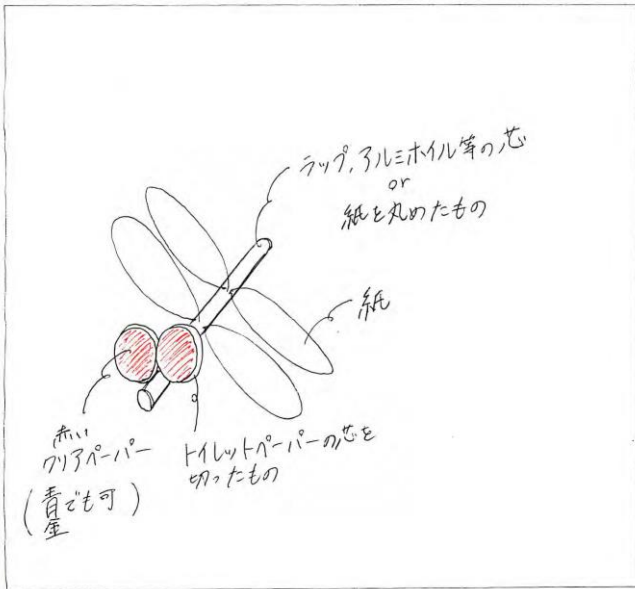 ラップ,アルミホイル等の芯
or
紙を丸めたもの
紙
赤い
クリアペーパー
(青でも可)
金
トイレットペーパーの芯を
切ったもの